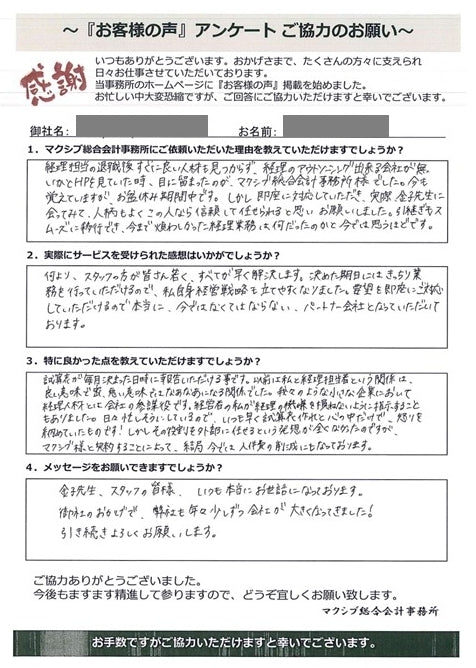 ～『お客様の声』アンケート ご協力のお願い～
感謝
いつもありがとうございます。おかげさまで、たくさんの方々に支えられ
日々お仕事させていただいております。
当事務所のホームページに『お客様の声』掲載を始めました。
お忙しい中大変恐縮ですが、ご回答にご協力いただけますと幸いでございます。
御社名：
お名前：
1．マクシブ総合会計事務所にご依頼いただいた理由を教えていただけますでしょうか？
経理担当の退職後すぐに良い人材も見つからず、経理のアウトソーシング出来る会社が無
いかとHPを見ていた時、目に留まったのが、マクシブ総合会計事務所様でした。今も
覚えていますが、お盆休み期間中です。しかし即座に対応していただき、実際、金子先生に
会ってみて、人柄もよくこの人なら信頼して任せられると思いお願いしました。引継ぎもス
ムーズに移行でき、今まで煩わしかった経理業務は何だったのかと今では思うほどです。
2．実際にサービスを受けられた感想はいかがでしょうか？
何より、スタッフの方が皆さん若く、すべてが早く解決します。決めた期日にはきっちり業
務を行っていただけるので、私自身経営戦略も立てやすくなりました。要望を即座にご対応
していただけるので本当に、今ではなくてはならない、パートナー会社となっていただいて
おります。
3．特に良かった点を教えていただけますでしょうか？
試算表が毎月決まった日時に報告いただける事です。以前は私と経理担当者という関係は、
良い意味で密、悪い意味ではなあなあになる関係でした。我々のような小さな企業において
経理人材とは会社の参謀役です。経営者の私が経理の機嫌を損ねないように指示すること
もありました。日々忙しそうにしているので、いつも早く試算表作れと心の中だけで、怒りを
納めていたものです！しかしその役割を外部に任せるという発想が全くなかったのですが、
マクシブ様と契約することによって、結局今では人件費の削減にもなっております。
4．メッセージをお願いできますでしょうか？
金子先生、スタッフの皆様、いつも本当にお世話になっております。
御社のおかげで、弊社も年々少しずつ会社が大きくなってきました！
引き続きよろしくお願いします。
ご協力ありがとうございました。
今後もますます精進して参りますので、どうぞ宜しくお願い致します。
マクシブ総合会計事務所
お手数ですがご協力いただけますと幸いでございます。